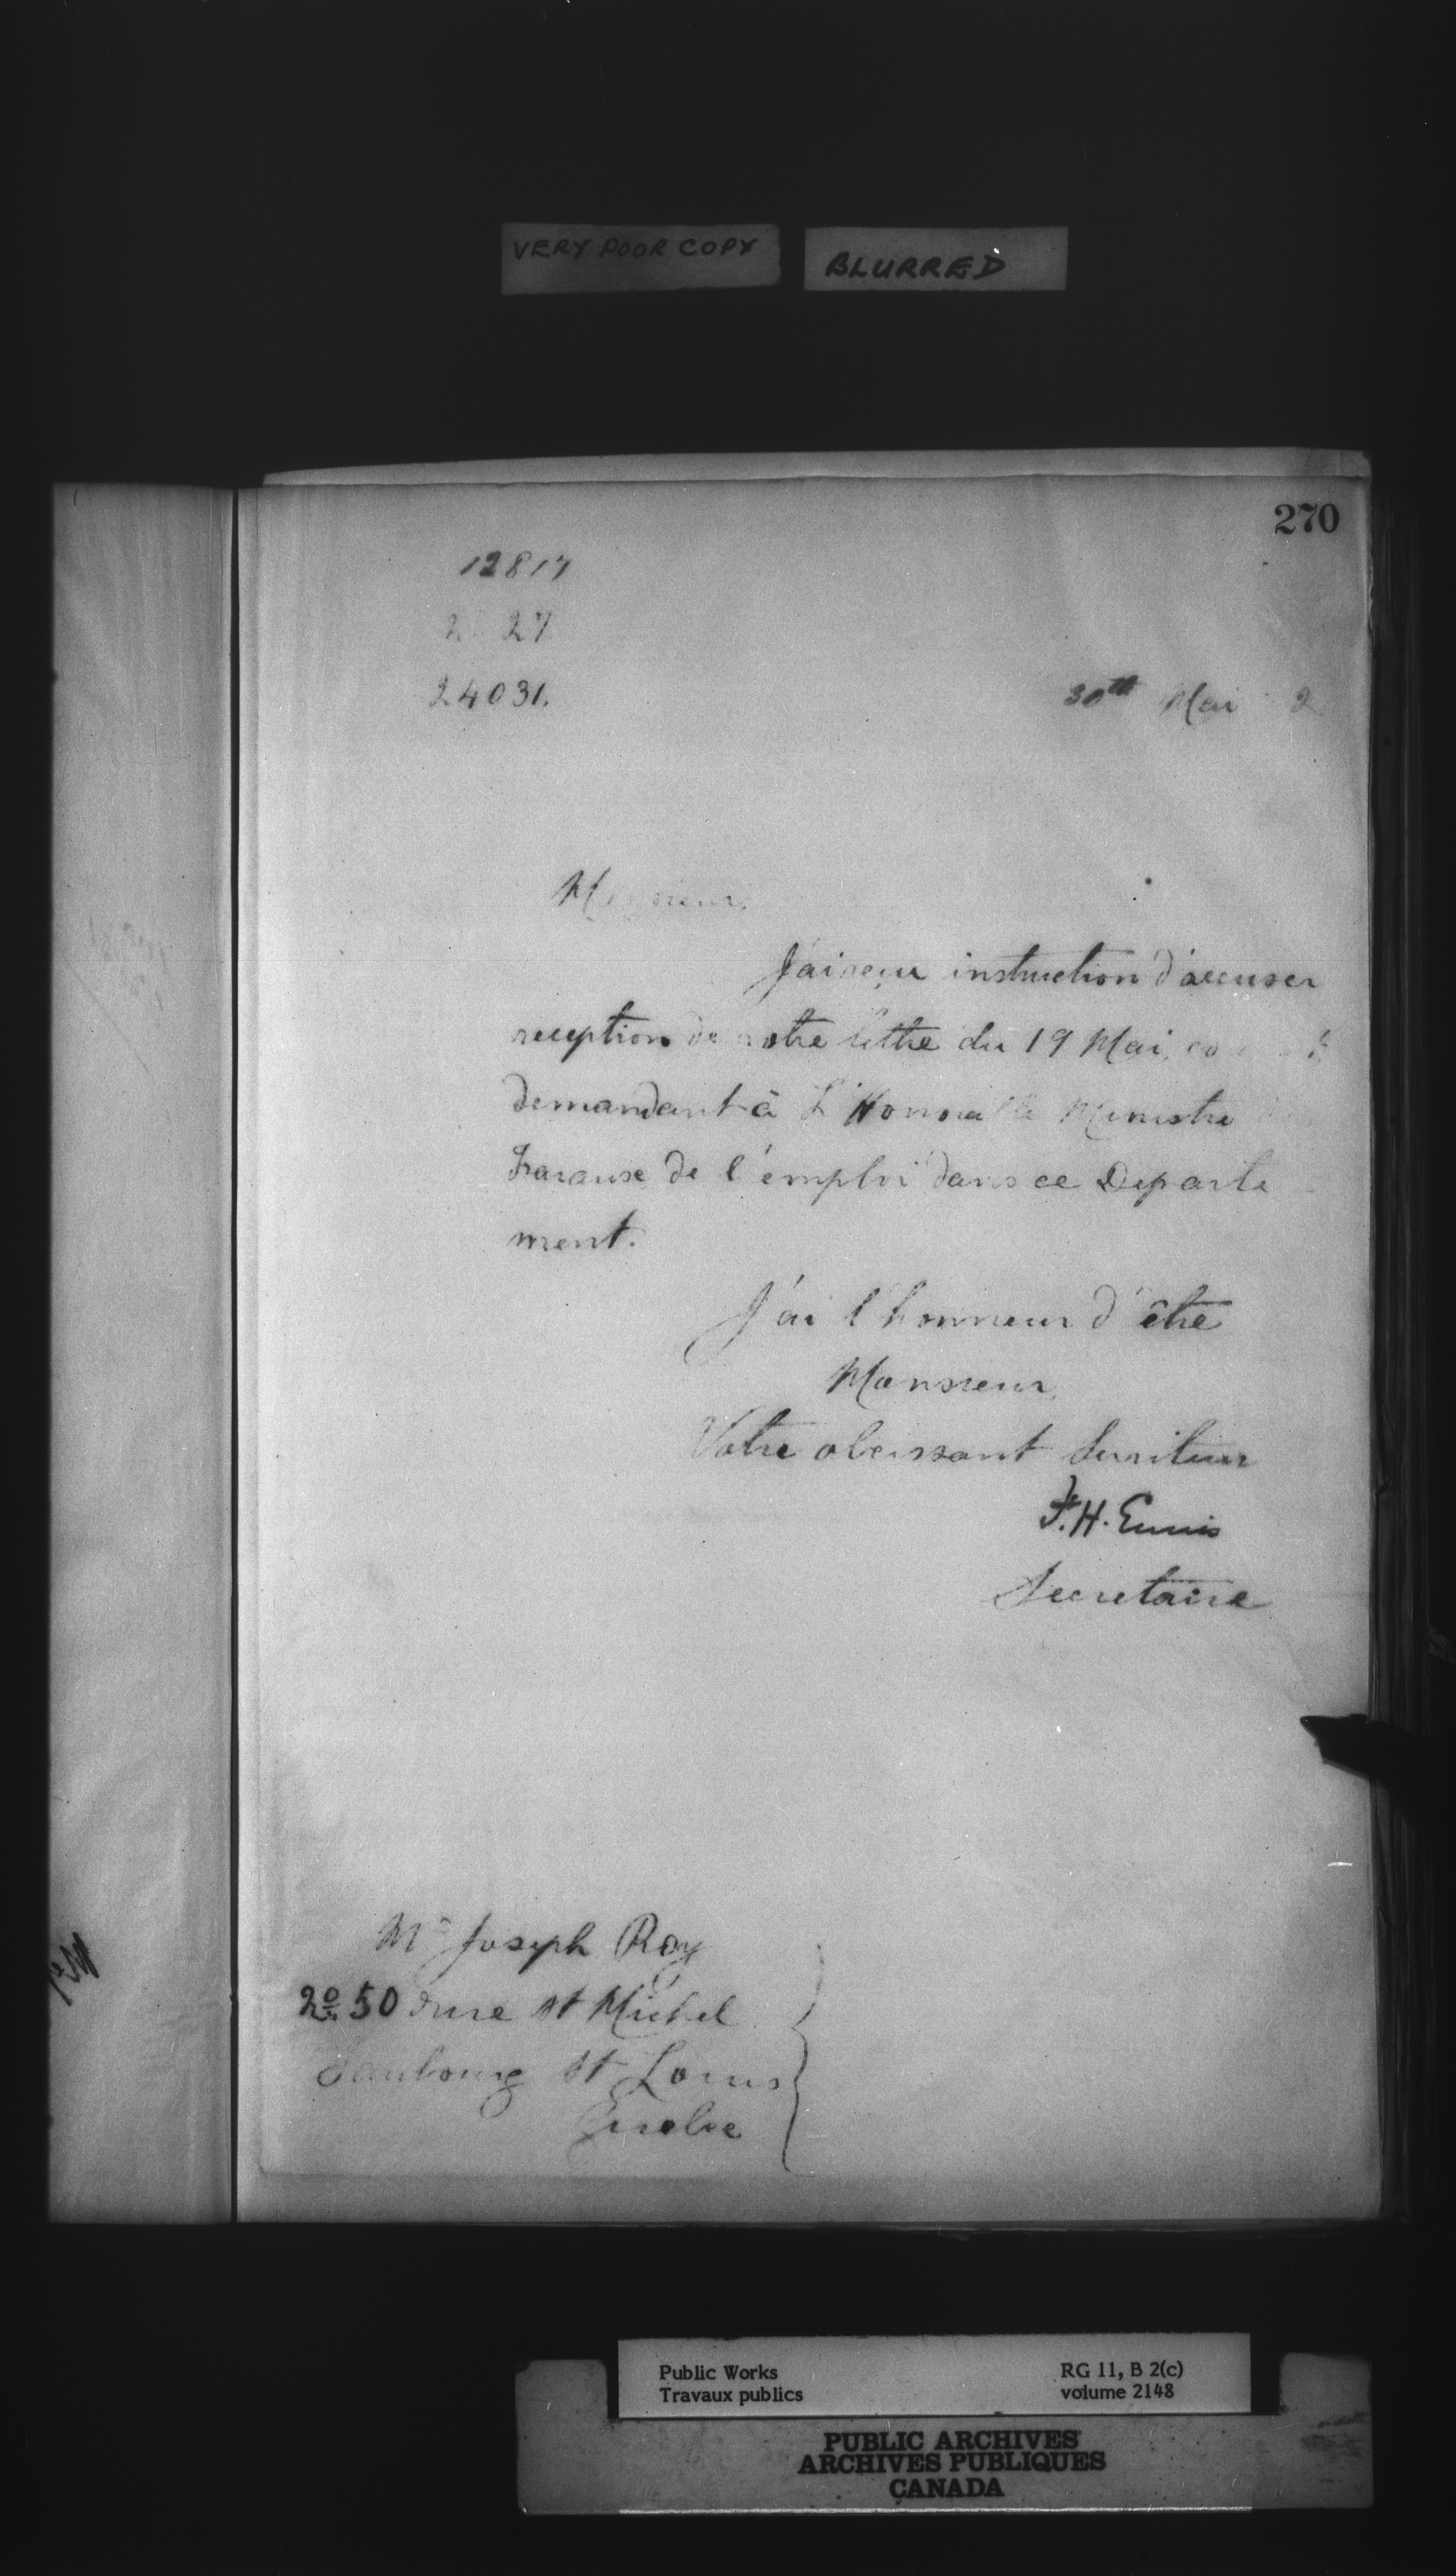 VERY POOR COPY
BLURRED
270
12817
27
24031.
30th Mai 2
Monsieur,
J'ai reçu instruction d'accuser
reception de votre lettre du 19 Mai,
demandant à L'Honorable Ministre
Travaux de l'emploi dans ce Departe
ment.
J'ai l'honneur d'être
Monsieur,
Votre obeissant Serviteur
F. H. Ennis
Secretaire
Mr Joseph Roy
No. 50 rue St Michel
Faubourg St Louis
Quebec
Public Works
Travaux publics
RG 11, B 2(c)
volume 2148
PUBLIC ARCHIVES
ARCHIVES PUBLIQUES
CANADA